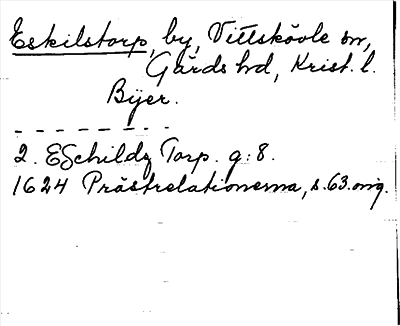 Eskilstorp, by, Vittskövle sn,
Gärds hd, Krist. l.
Byer.
2. ESchildz Torp. g: 8.
1624 Prästrelationerna, s. 63. orig.